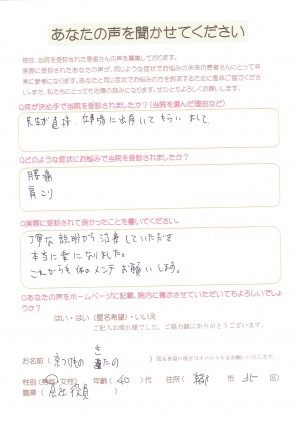 あなたの声を聞かせてください
現在、当院を受診された患者さんの声を募集しております。
実際に受診されたあなたの声が、同じような症状でお悩みの未来の患者さんにとって非
常に参考になります。あなたと同じ症状でお悩みの方を救済するために是非ご協力くださ
い。また、私たちにとっても治療の励みになります。ぜひともよろしくお願いします。
Q何が決め手で当院を受診されましたか?(当院を選んだ理由など)
先生が直接、仕事場に出向いてもらいまして、
Qどのような症状にお悩みで当院を受診されましたか?
腰痛
肩こり
Q実際に受診されて良かったことを書いてください。
丁寧な説明から治療していただき
本当に楽になりました。
これからも体のメンテお願いします。
Qあなたの声をホームページに記載、院内に掲示させていただいてもよろしいでしょ
うか?
はい・はい(匿名希望)・いいえ
ご記入お疲れ様でした。ご協力誠にありがとうございます。
お名前(
)
匿名希望の場合はイニシャルをお願いいたします。
性別(男性・女性) 年齢(40)代 住所( 市 区
職業(会社役員)